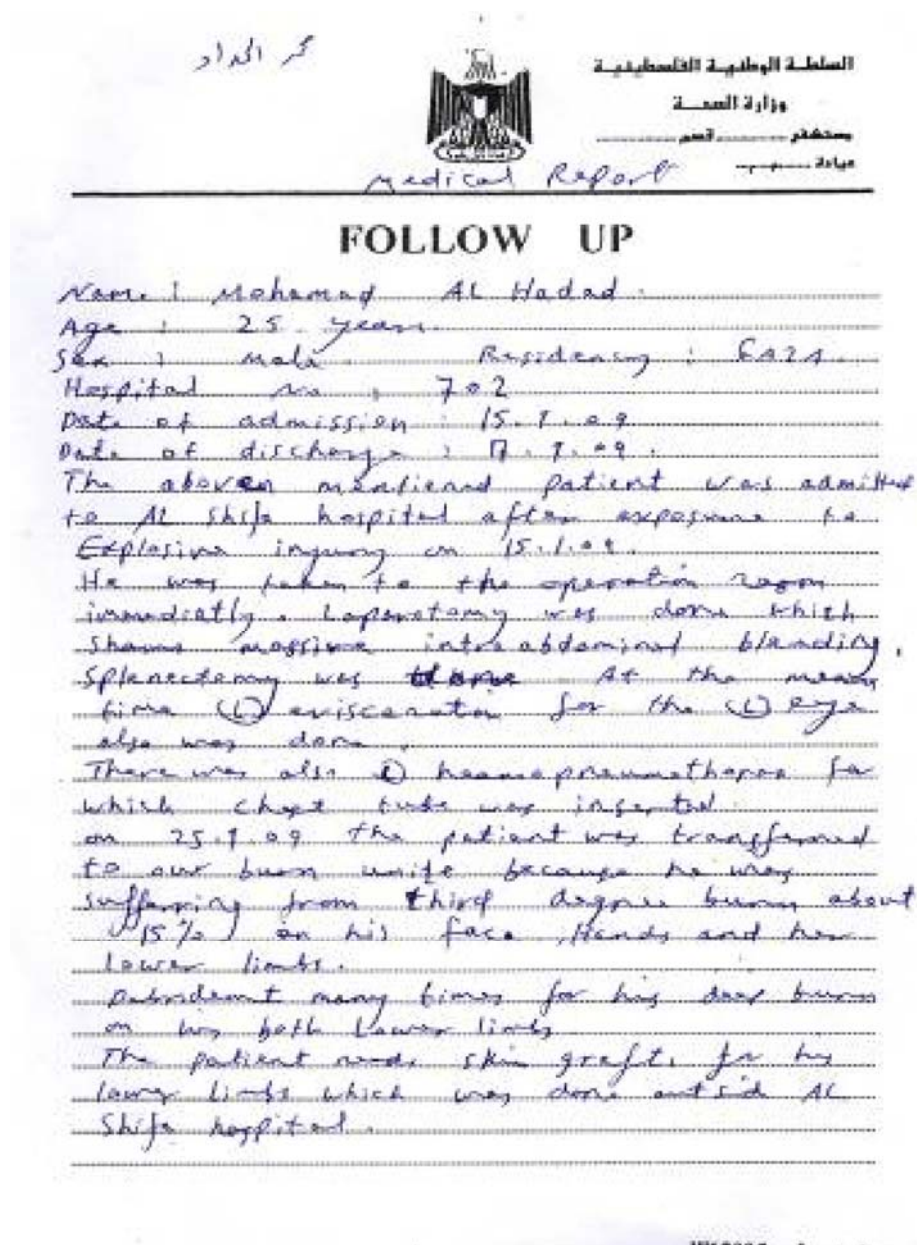 محمد الحداد
السلطة الوطنية الفلسطينية
وزارة الصحة
مستشفى ............ قسم ............
عيادة ............
Medical Report
FOLLOW UP
Name : Mohamad AL Hadad
Age : 25 years
Sex : Male Residency : Gaza
Hospital no : 702
Date of admission : 15.1.09
Date of discharge : .1.09
The above mentioned patient was admitted
to AL Shifa hospital after exposure to
Explosive injury on 15.1.09.
He was taken to the operation room
immediatly. Laperotomy was done which
shows massive intraabdominal bleeding,
Splenectomy was done At the mean
time (L) evisceration for the (L) eye
also was done.
There was also (L) heamopneumothorax for
which chest tube was inserted
on 25.1.09 the patient was transferred
to our burn unite because he was
suffering from third degree burn about
(15%) on his face, Hands and her
lower limbs.
Debridemt many times for his deep burn
on his both Lower limbs
The patient needs skin grafts for his
lower limbs which was done outsid AL
Shifa hospital.